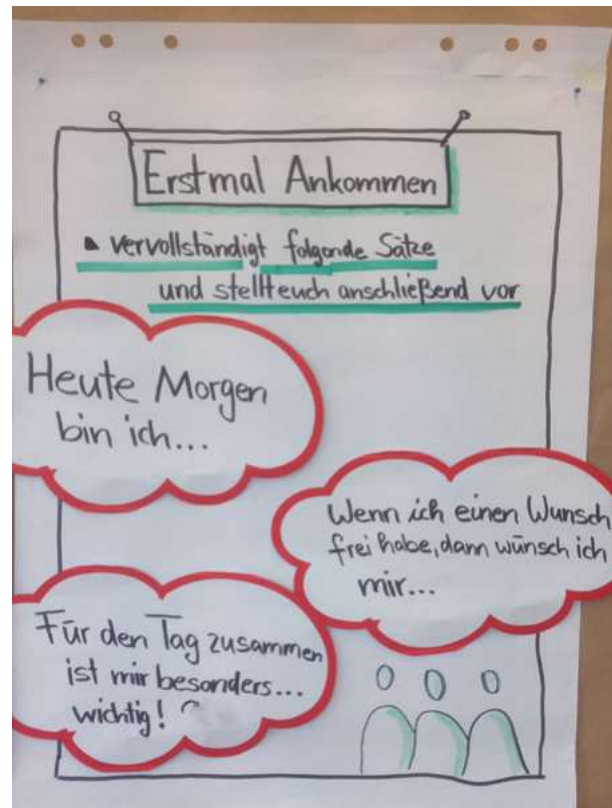 Erstmal Ankommen
▪ vervollständigt folgende Sätze
und stellt euch anschließend vor
Heute Morgen
bin ich...
Wenn ich einen Wunsch
frei habe, dann wünsch ich
mir...
Für den Tag zusammen
ist mir besonders...
wichtig!